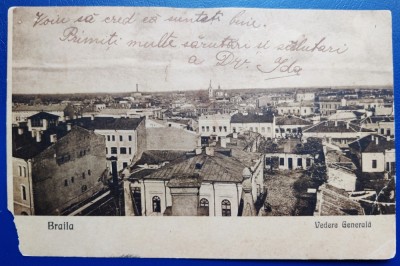 Voiu să cred că sunteți bine.
Primiți multe sărutări și salutări
a Dv. Ida
Braila
Vedere Generală